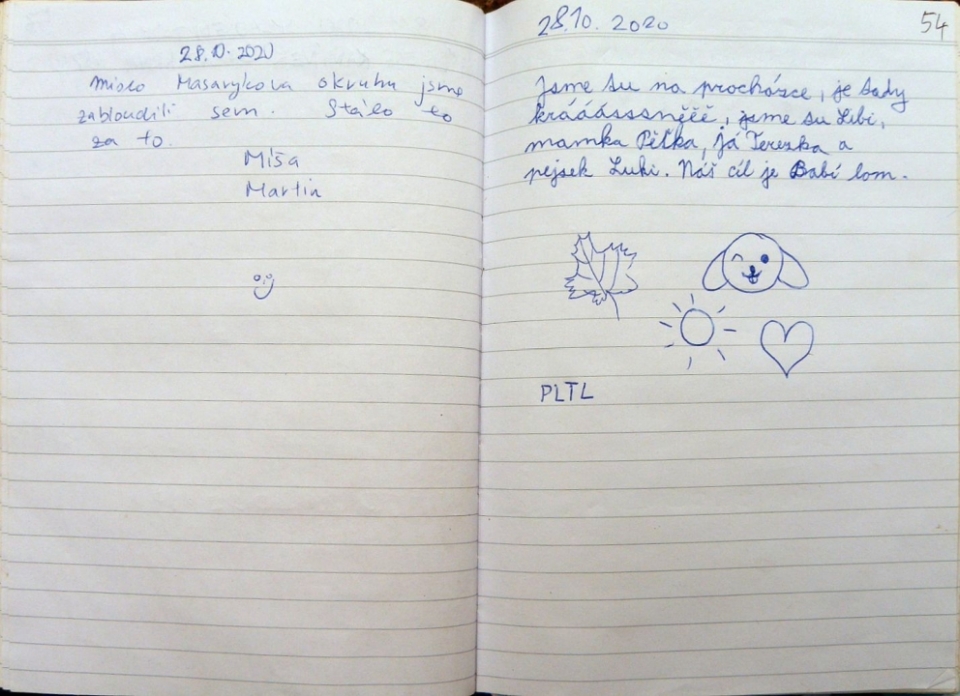 28.10.2020
místo Masarykova okruhu jsme
zabloudili sem. Stálo to
za to.
Míša
Martin
54
28.10.2020
Jsme su na procházce, je sady
kráááasssněěě, jsme su Libi,
mamka Péťka, já Terezka a
pejsek Luki. Náš cíl je Babí lom.
PLTL